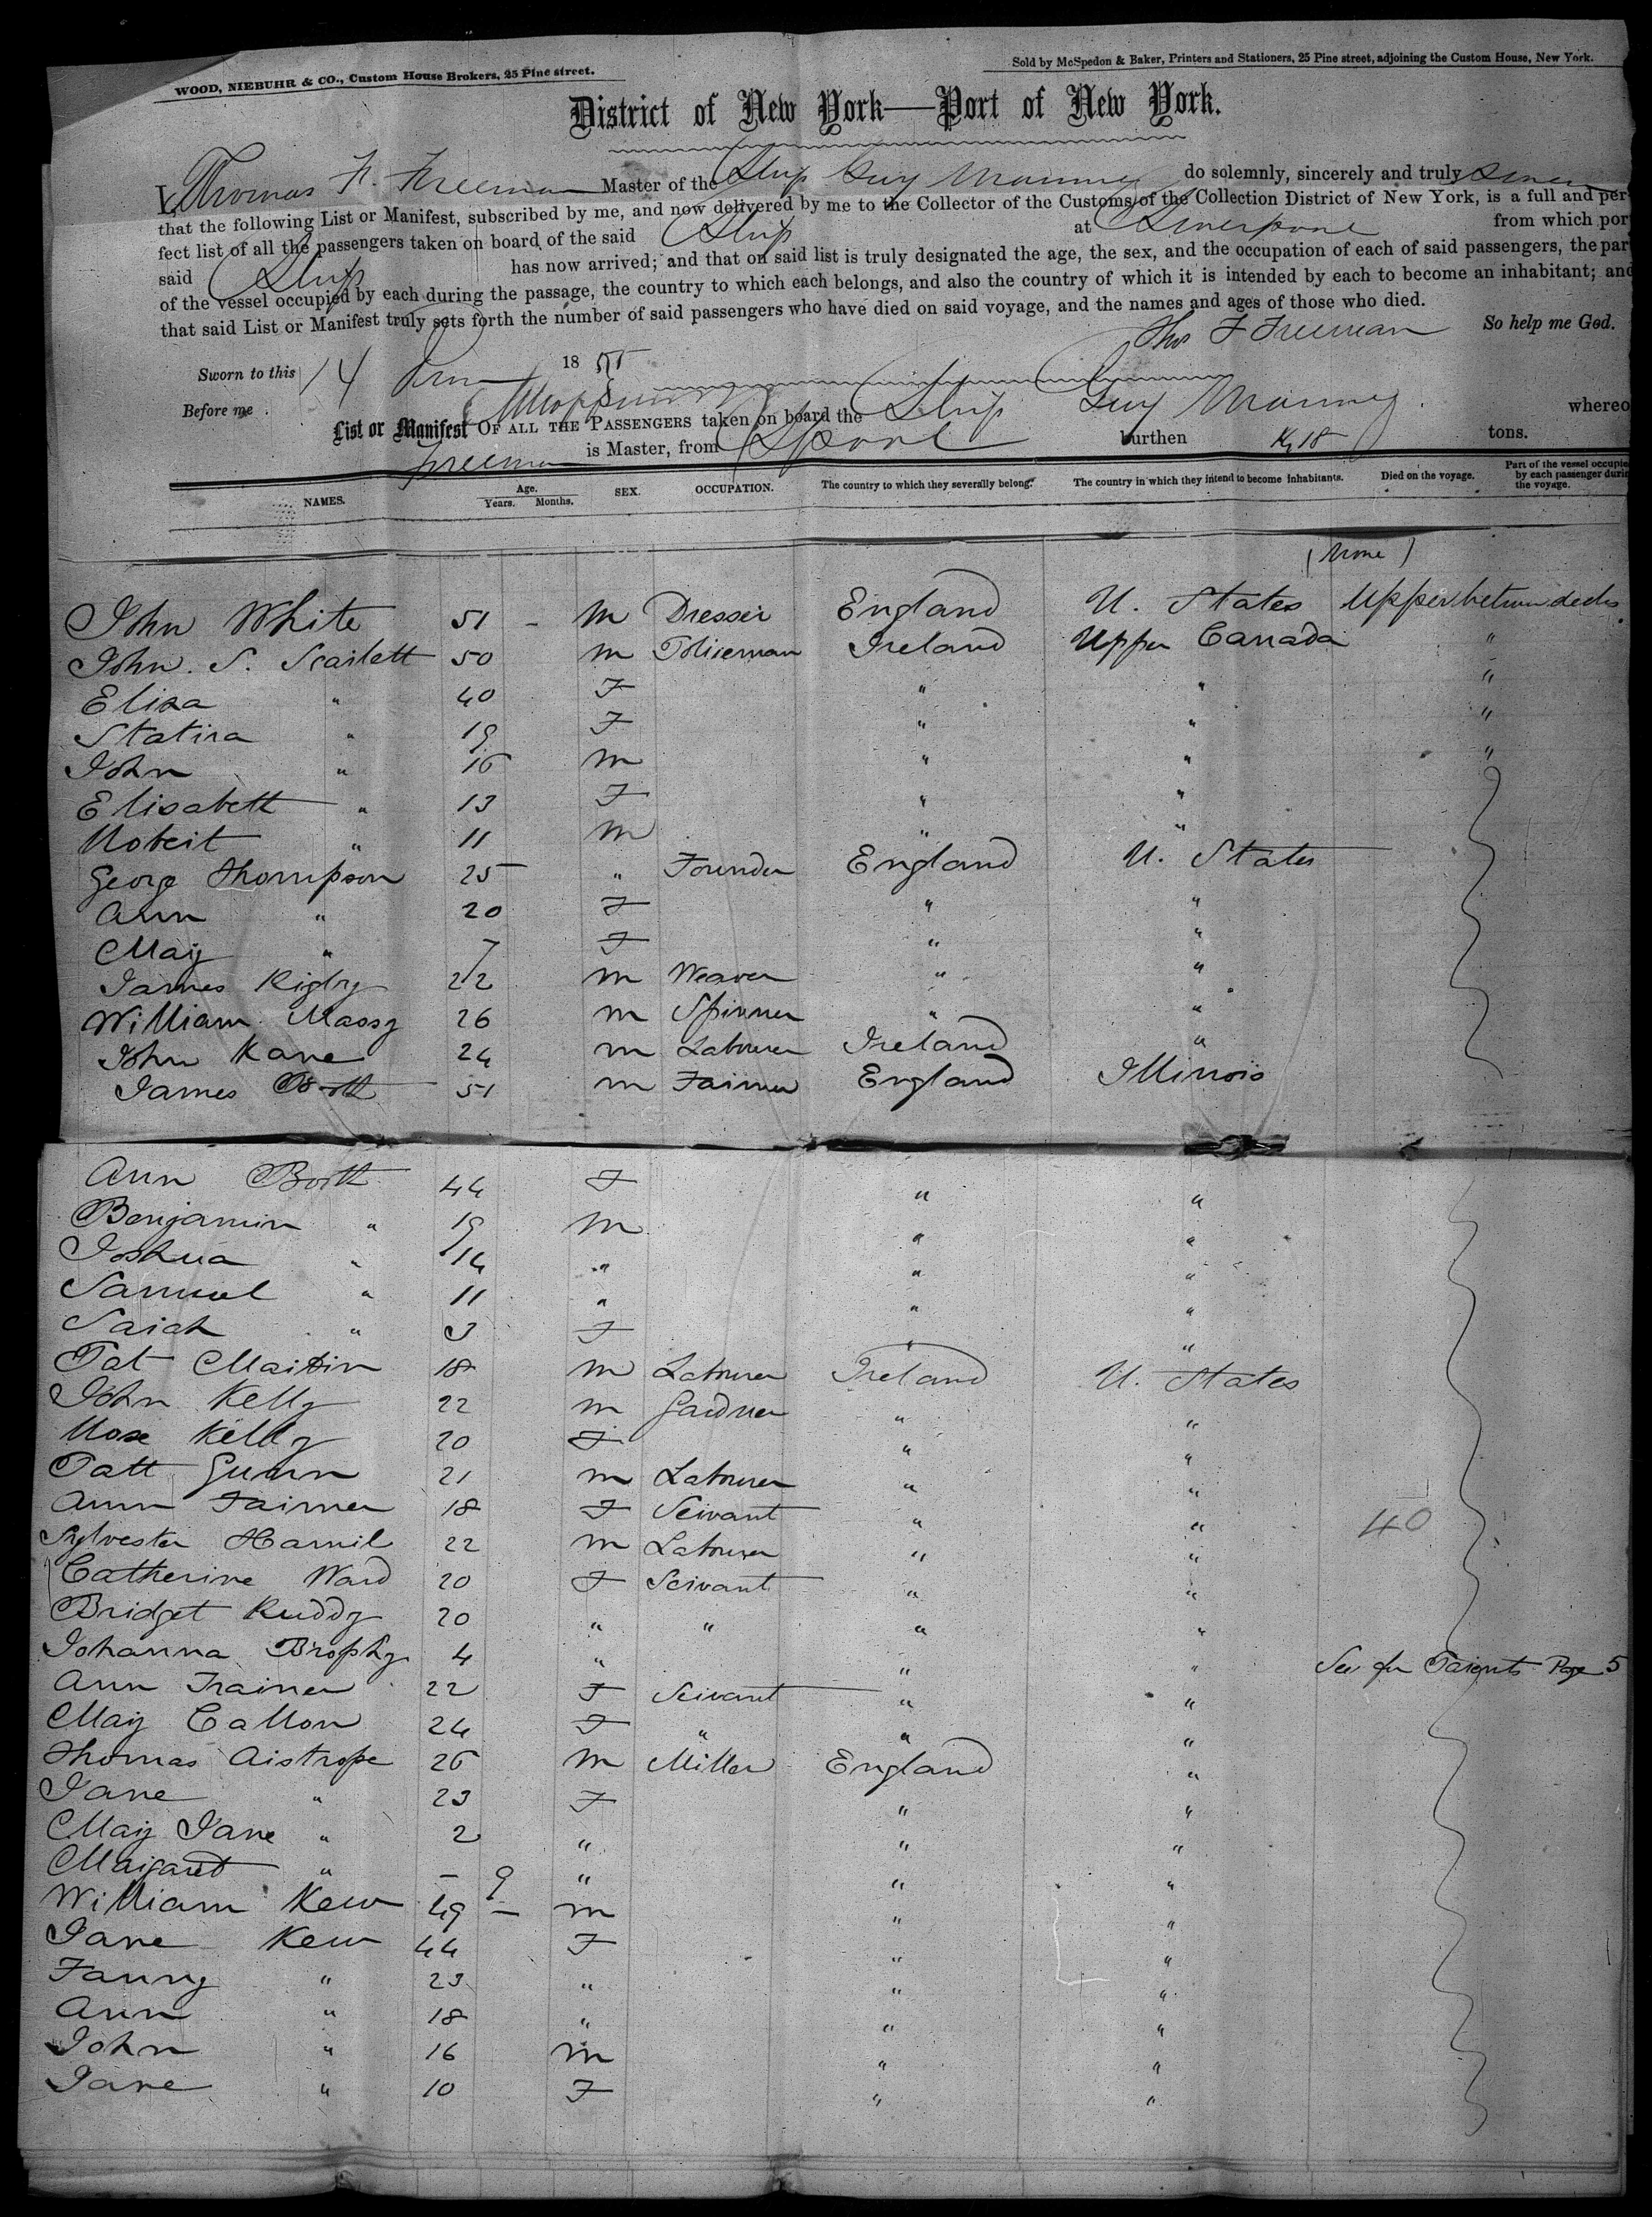 WOOD, NIEBUHR & CO., Custom House Brokers, 25 Pine street.
Sold by McSpedon & Baker, Printers and Stationers, 25 Pine street, adjoining the Custom House, New York.
District of New York—Port of New York.
I, Thomas F. Freeman Master of the Ship Guy Mannering do solemnly, sincerely and truly swear
that the following List or Manifest, subscribed by me, and now delivered by me to the Collector of the Customs of the Collection District of New York, is a full and per
fect list of all the passengers taken on board of the said Ship at Liverpool from which por
said Ship has now arrived; and that on said list is truly designated the age, the sex, and the occupation of each of said passengers, the par
of the vessel occupied by each during the passage, the country to which each belongs, and also the country of which it is intended by each to become an inhabitant; and
that said List or Manifest truly sets forth the number of said passengers who have died on said voyage, and the names and ages of those who died.
So help me God.
Thos F Freeman
Sworn to this 14 1855
Before me
List or Manifest OF ALL THE PASSENGERS taken on board the Ship Guy Mannering whereo
Freeman is Master, from Lpool burthen tons.
NAMES. Age. Years. Months. SEX. OCCUPATION. The country to which they severally belong. The country in which they intend to become inhabitants. Died on the voyage. Part of the vessel occupie by each passenger durin the voyage.
(None)
John White 51 - M Dresser England U. States Upper between decks
John. S. Scarlett 50 M Policeman Ireland Upper Canada "
Eliza " 40 F " " "
Statira " 19 F " " "
John " 16 M " " "
Elisabett " 13 F " "
Robert " 11 M " "
George Thompson 25 " Founder England U. States
Ann " 20 F " "
Mary " 7 F " "
James Rigby 22 M Weaver " "
William Massy 26 M Spinner " "
John Kane 24 M Labourer Ireland "
James Booth 51 M Farmer England Illinois
Ann Booth 44 F " "
Benjamin " 19 M " "
Joshua " 14 " " "
Samuel " 11 " " "
Sarah " 3 F " "
Pat Martin 18 M Labourer Ireland U. States
John Kelly 22 M Gardner " "
Rose Kelly 20 F " "
Patt Gunn 21 M Labourer " "
Ann Farmer 18 F Servant " " 40
Sylvester Hamil 22 M Labourer " "
Catherine Ward 20 F Servant " "
Bridget Ruddy 20 " " " "
Johanna Brophy 4 " " " See for Parents Page 5
Ann Trainer 22 F Servant " "
Mary Callon 24 F " " "
Thomas Aistrope 26 M Miller England "
Jane " 23 F " "
Mary Jane " 2 " " "
Margaret " - 9 " " "
William Kew 49 - M " "
Jane Kew 44 F " "
Fanny " 23 " " "
Ann " 18 " " "
John " 16 M " "
Jane " 10 F " "